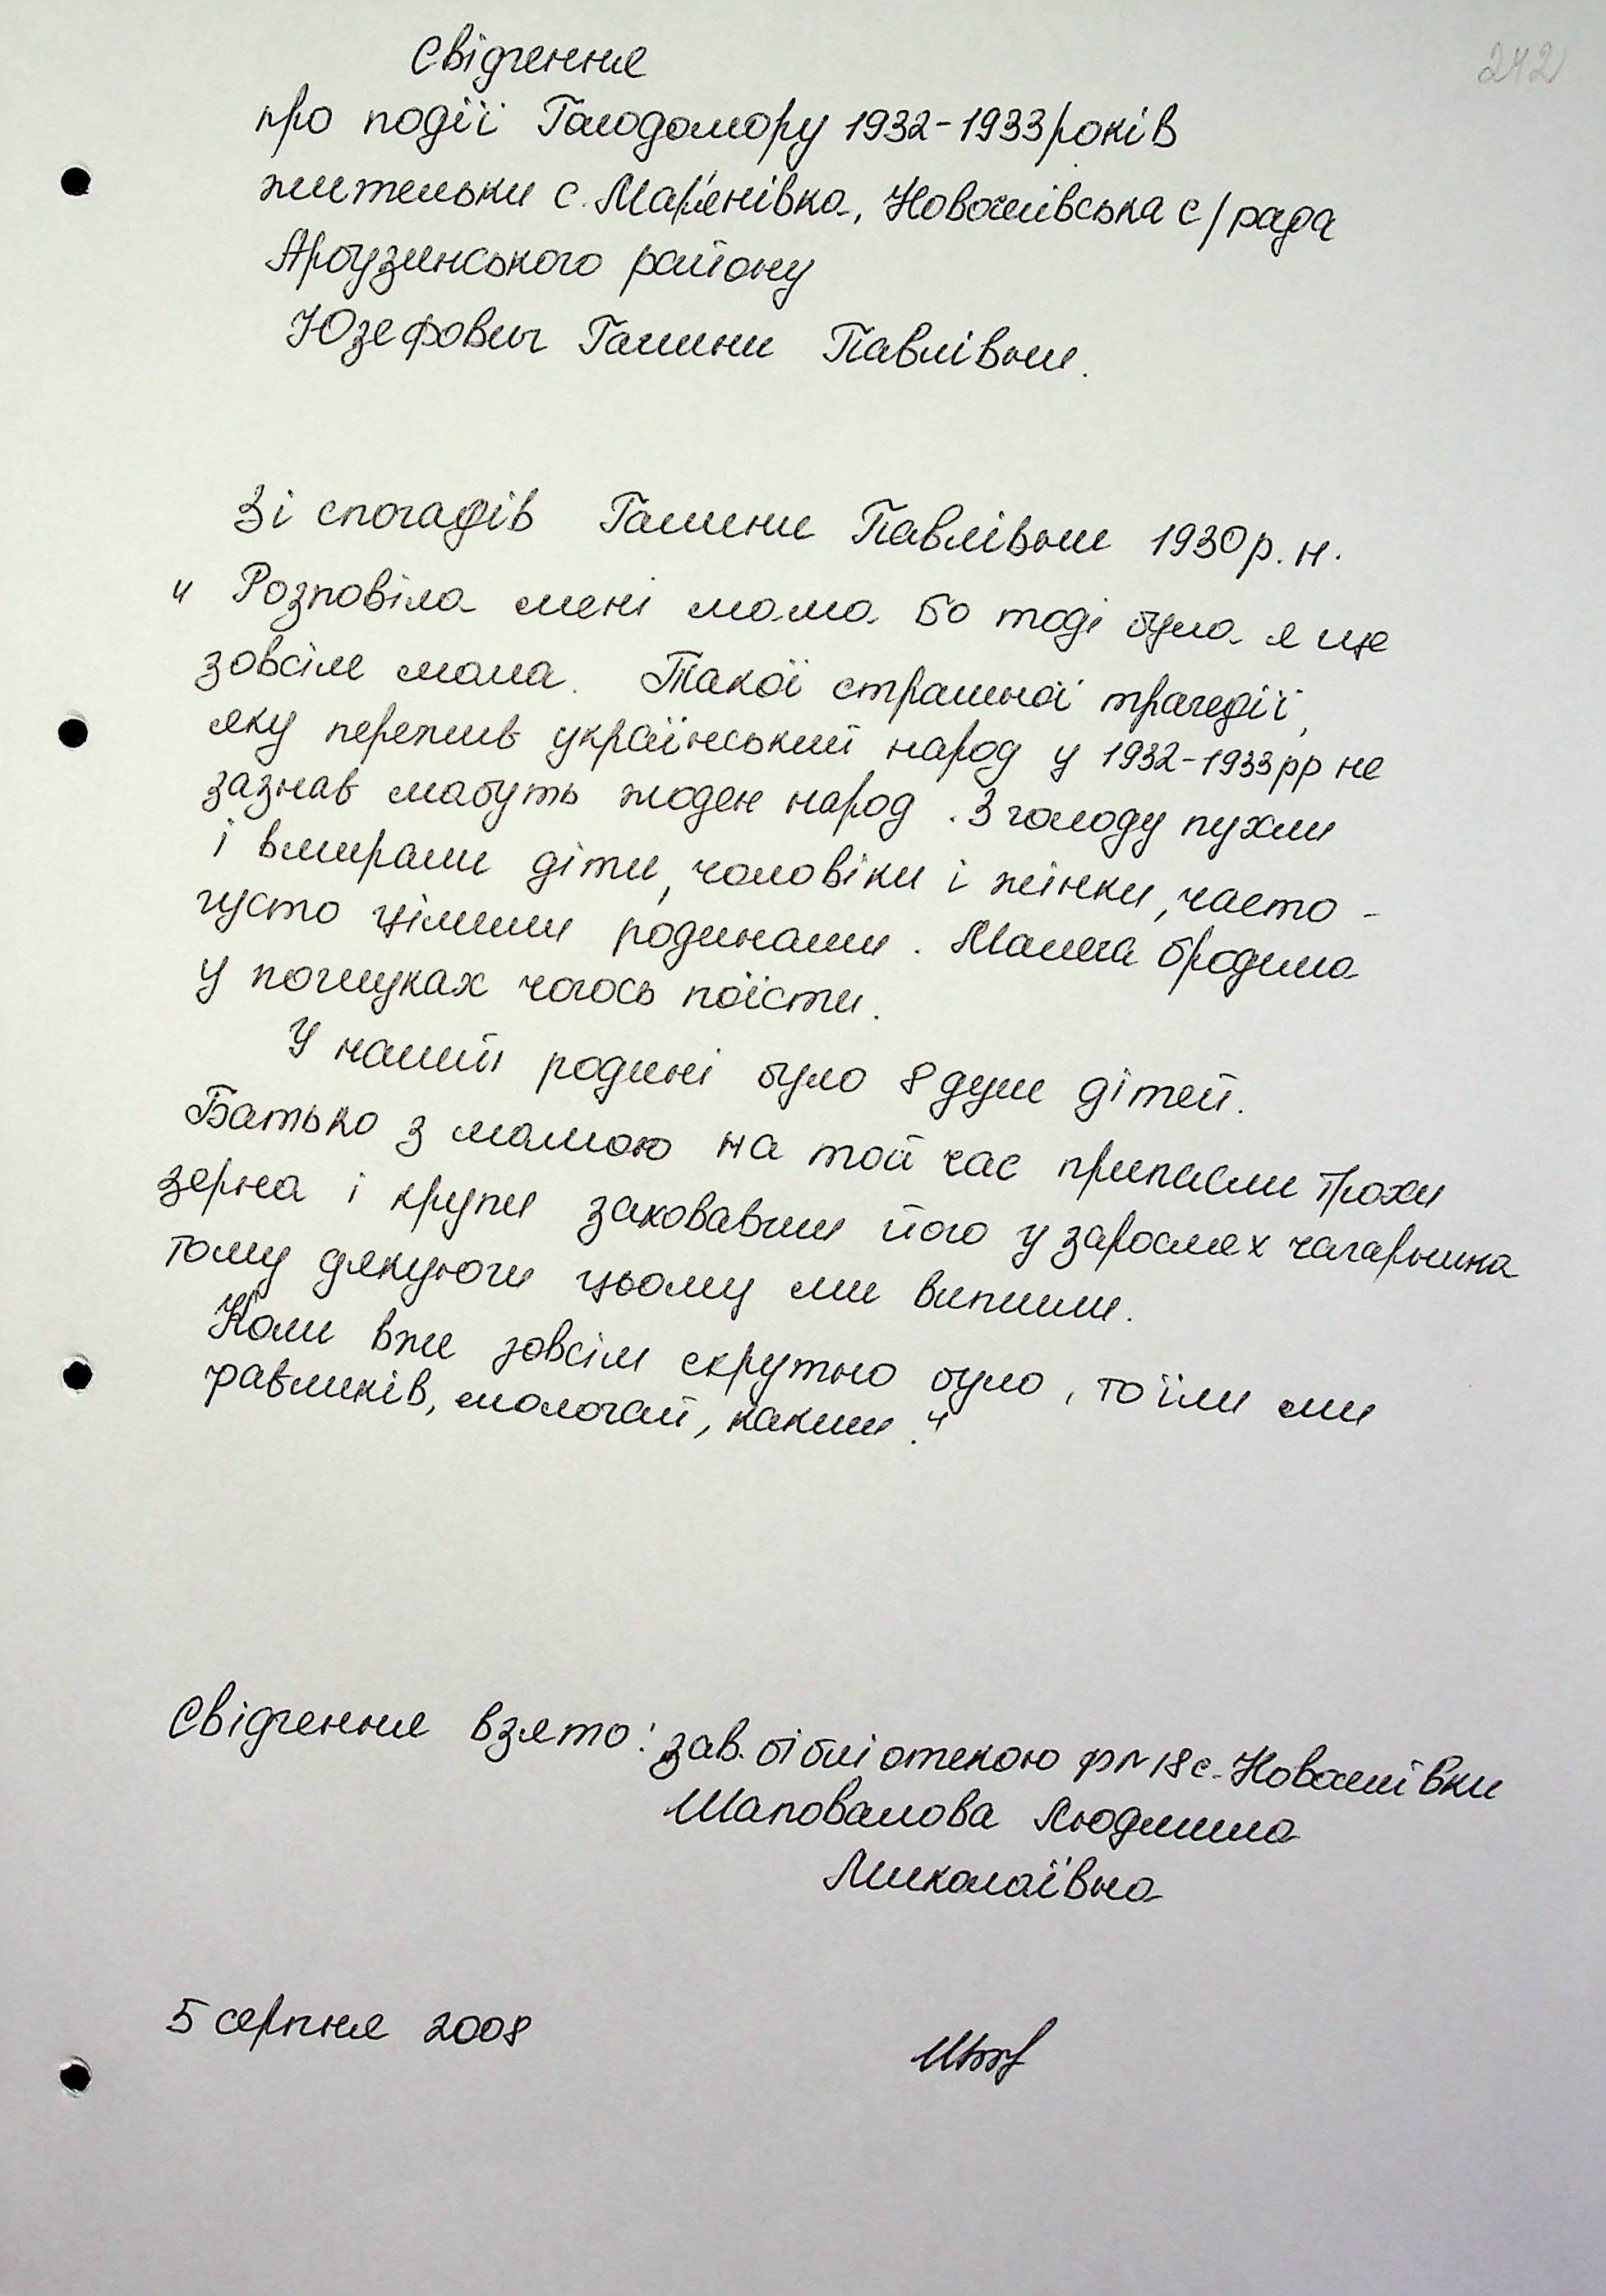 242
Свідчення
про події Голодомору 1932-1933 років
жительки с. Мар'янівка, Новоселівська с/рада
Арбузинського району
Юзефович Галини Павлівни.
Зі спогадів Галини Павлівни 1930 р. н.
" Розповіла мені мама бо тоді була я ще
зовсім мала. Такої страшної трагедії,
яку пережив український народ у 1932-1933 рр не
зазнав мабуть жоден народ. З голоду пухли
і вмирали діти, чоловіки і жінки, часто -
густо цілими родинами. Малеча бродила
у пошуках чогось поїсти.
У нашій родині було 8 душ дітей.
Батько з мамою на той час припасли трохи
зерна і крупи заховавши його у зарослях чагарника
тому дякуючи цьому ми вижили.
Коли вже зовсім скрутно було, то їли ми
равликів, молочай, качики."
Свідчення взято: зав. бібліотекою ф№18 с. Новоселівки
Шаповалова Людмила
Миколаївна
5 серпня 2008